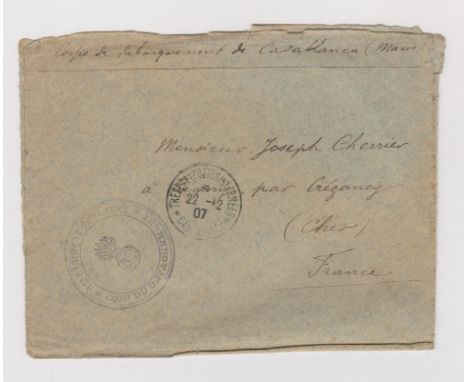 Corps de débarquement de Casablanca (Maroc)
Monsieur Joseph Cherrier
à par Crézancy
(Cher)
France
TRESOR ET POSTES AUX ARMEES
22 -12
07